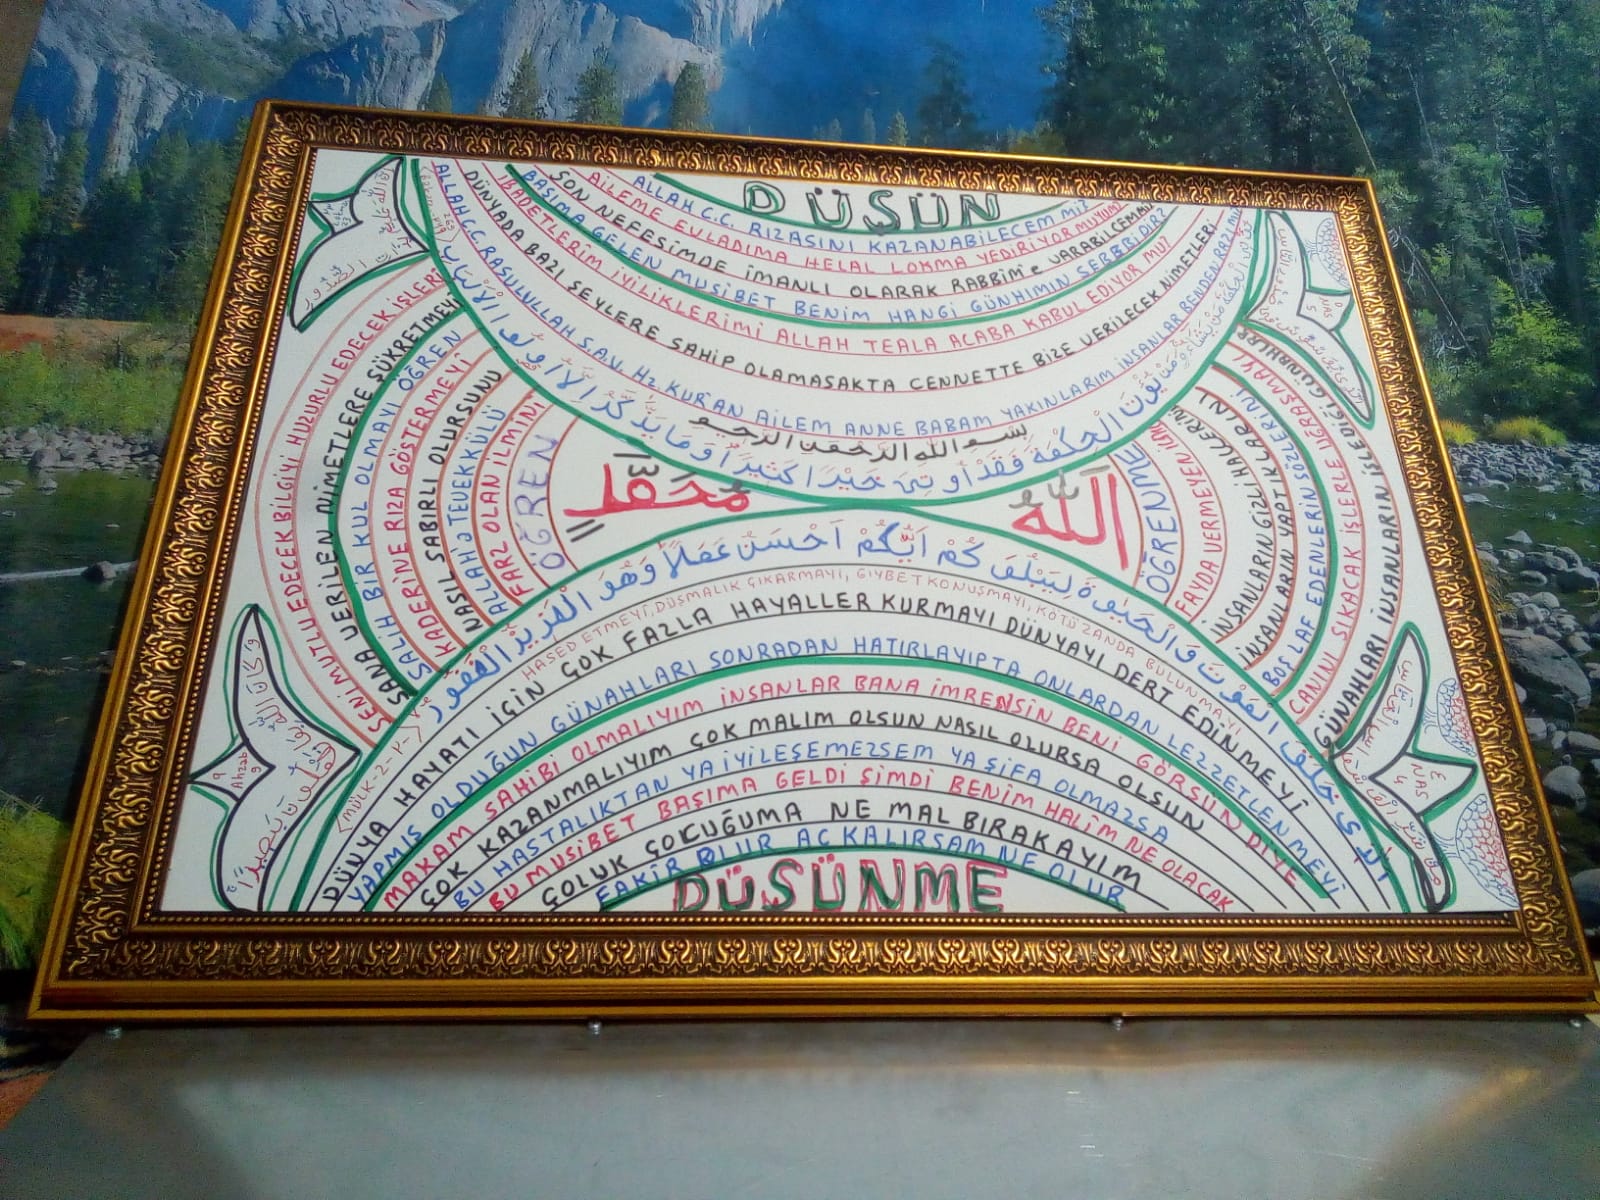 DÜŞÜN
ALLAH C.C. RIZASINI KAZANABİLECEM Mİ?
AİLEME EVLADIMA HELAL LOKMA YEDİRİYORMUYUM?
SON NEFESİMDE İMANLI OLARAK RABBİM'e VARABİLCEMMİ
BAŞIMA GELEN MUSİBET BENİM HANGİ GÜNHIMIN SEBBBİDİR?
İBADETLERİM İYİLİKLERİMİ ALLAH TEALA ACABA KABUL EDİYOR MU?
DÜNYADA BAZI ŞEYLERE SAHİP OLAMASAKTA CENNETTE BİZE VERİLECEK NİMETLERİ
ALLAH C.C. RASULULLAH S.A.V. Hz. KUR'AN AİLEM ANNE BABAM YAKINLARIM İNSANLAR BENDEN RAZI MI
بسم الله الرحمن الرحيم
يُؤْتَ الْحِكْمَةَ فَقَدْ أُوتِيَ خَيْرًا كَثِيرًا وَمَا يَذَّكَّرُ إِلَّا أُولُو الْأَلْبَابِ
ÖĞREN
FARZ OLAN İLMİNİ
ALLAH'a TEVEKKÜLÜ
NASIL SABIRLI OLURSUNU
KADERİNE RIZA GÖSTERMEYİ
SALİH BİR KUL OLMAYI ÖĞREN
SANA VERİLEN NİMETLERE ŞÜKRETMEYİ
SENİ MUTLU EDECEK BİLGİYİ HUZURLU EDECEK İŞLERİ
محمد
الله
ÖĞRENME
FAYDA VERMEYEN
İNSANLARIN GİZLİ HALLERİNİ
İNSANLARIN YAPTIKLARINI
BOŞ LAF EDENLERİN SÖZLERİNİ
CANINI SIKACAK İŞLERLE UĞRAŞMAYI
GÜNAHLARI İNSANLARIN İŞLEDİĞİ GÜNAHLARI
الَّذِي خَلَقَ الْمَوْتَ وَالْحَيَوةَ لِيَبْلُوَكُمْ أَيُّكُمْ أَحْسَنُ عَمَلًا وَهُوَ الْعَزِيزُ الْغَفُورُ
(MÜLK-2-
HASED ETMEYİ, DÜŞMALIK ÇIKARMAYI, GIYBET KONUŞMAYI, KÖTÜ ZANDA BULUNMAYI
DÜNYA HAYATI İÇİN ÇOK FAZLA HAYALLER KURMAYI DÜNYAYI DERT EDİNMEYİ
YAPMIŞ OLDUĞUN GÜNAHLARI SONRADAN HATIRLAYIPTA ONLARDAN LEZZETLENMEYİ
MAKAM SAHİBİ OLMALIYIM İNSANLAR BANA İMRENSİN BENİ GÖRSÜN DİYE
ÇOK KAZANMALIYIM ÇOK MALIM OLSUN NASIL OLURSA OLSUN
BU HASTALIKTAN YA İYİLEŞEMEZSEM YA ŞİFA OLMAZSA
BU MUSİBET BAŞIMA GELDİ ŞİMDİ BENİM HALİM NE OLACAK
ÇOLUK ÇOCUĞUMA NE MAL BIRAKAYIM
FAKİR OLUR AÇ KALIRSAM NE OLUR
DÜŞÜNME
Ahzab
9
NAS
5
NAS
4